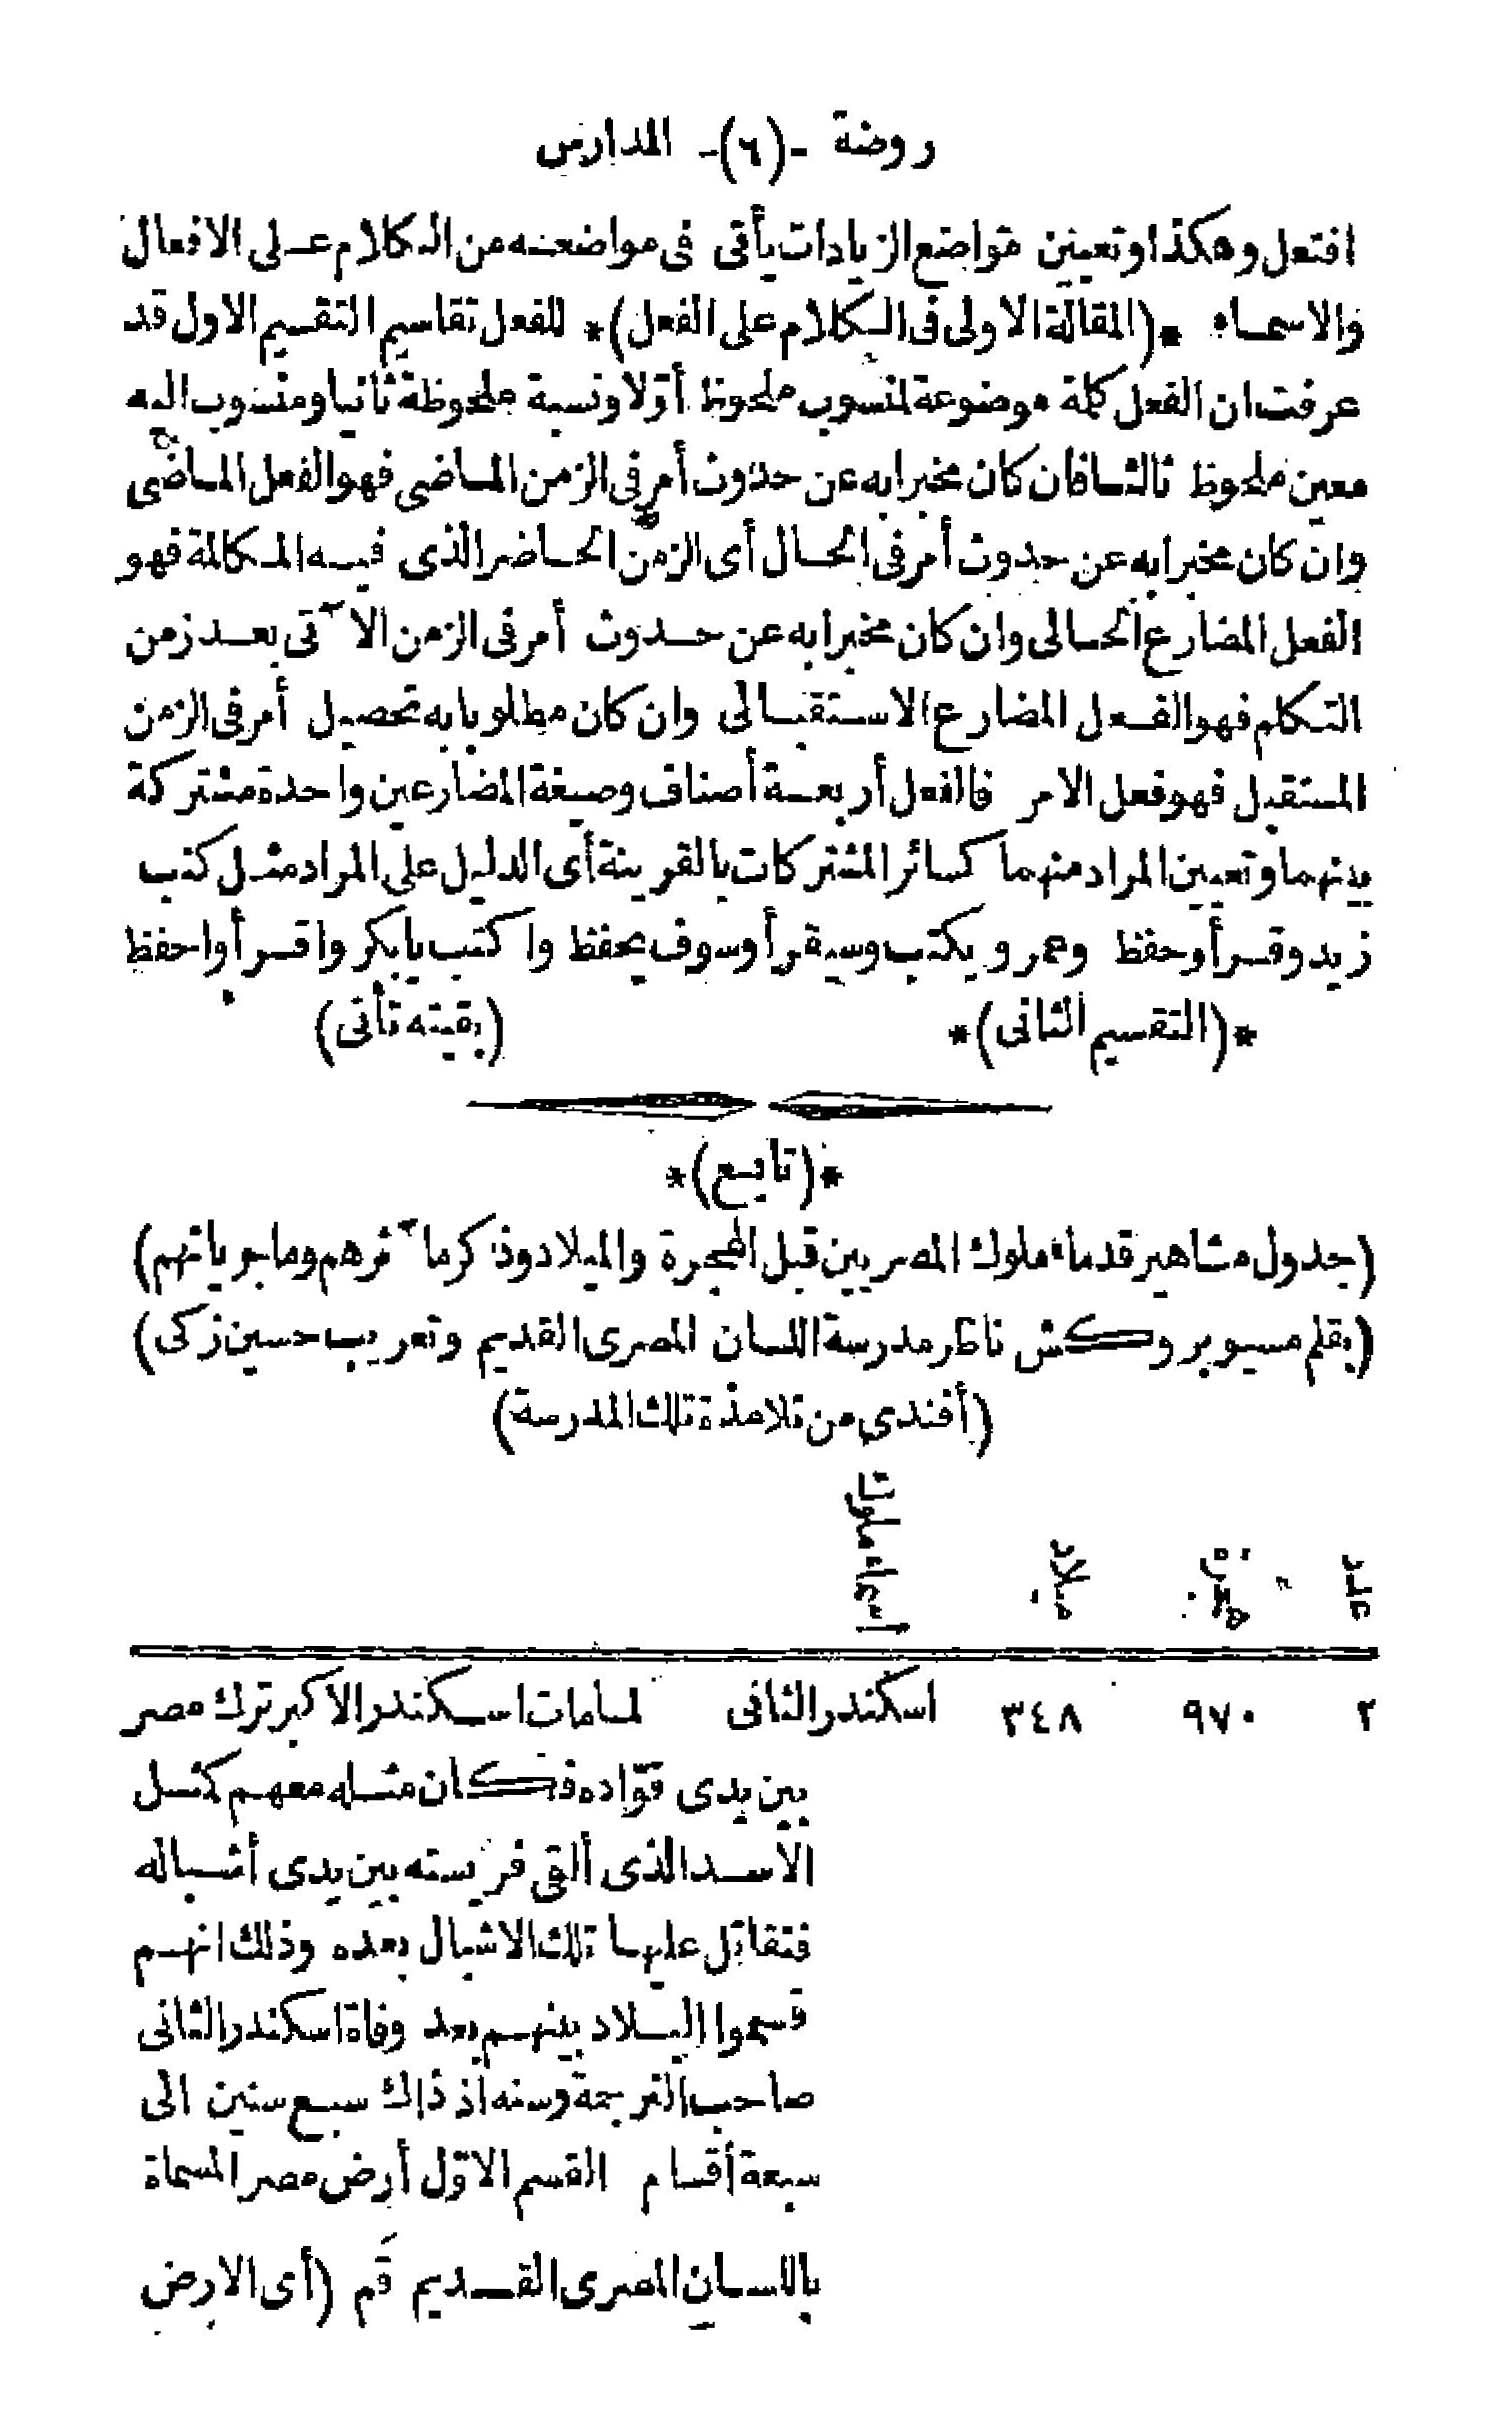 روضة -(٦)- المدارس
افتعل وهكذا وتعيين مواضع الزيادات يأتى فى مواضعه من الكلام على الافعال
والاسماء *(المقالة الاولى فى الكلام على الفعل)* للفعل تقاسيم التقسيم الاول قد
عرفت ان الفعل كلمة موضوعة لمنسوب ملحوظ أوّلا ونسبة ملحوظة ثانيا ومنسوب اليه
معين ملحوظ ثالثا فان كان مخبرا به عن حدوث أمر فى الزمن الماضى فهو الفعل الماضى
وان كان مخبرا به عن حدوث أمر فى الحال أى الزمن الحاضر الذى فيه المكالمة فهو
الفعل المضارع الحالى وان كان مخبرا به عن حدوث أمر فى الزمن الآتى بعد زمن
التكلم فهو الفعل المضارع الاستقبالى وان كان مطلوبا به تحصيل أمر فى الزمن
المستقبل فهو فعل الامر فالفعل أربعة أصناف وصيغة المضارعين واحدة مشتركة
بينهما وتعيين المراد منهما كسائر المشتركات بالقرينة أى الدليل على المراد مثل كتب
زيد وقرأ وحفظ وعمرو يكتب وسيقرأ وسوف يحفظ واكتب يابكر واقرأ واحفظ
*(التقسيم الثانى)* (بقيته تأتى)
*(تابع)*
(جدول مشاهير قدماء ملوك المصريين قبل الهجرة والميلاد وذكر مآثرهم وماجرياتهم)
(بقلم مسيو بروكش ناظر مدرسة اللسان المصرى القديم وتعريب حسين زكى)
(أفندى من تلامذة تلك المدرسة)
عدد هجرة ميلاد اسماء ملوك
٢ ٩٧٠ ٣٤٨ اسكندر الثانى لما مات اسكندر الاكبر ترك مصر
بين يدى قوّاده فكان مثله معهم كمثل
الاسد الذى ألقى فريسته بين يدى أشباله
فتقاتل عليها تلك الاشبال بعده وذلك انهم
قسموا البلاد بينهم بعد وفاة اسكندر الثانى
صاحب الترجمة وسنه اذ ذاك سبع سنين الى
سبعة أقسام القسم الاوّل أرض مصر المسماة
باللسان المصرى القديم قَم (أى الارض